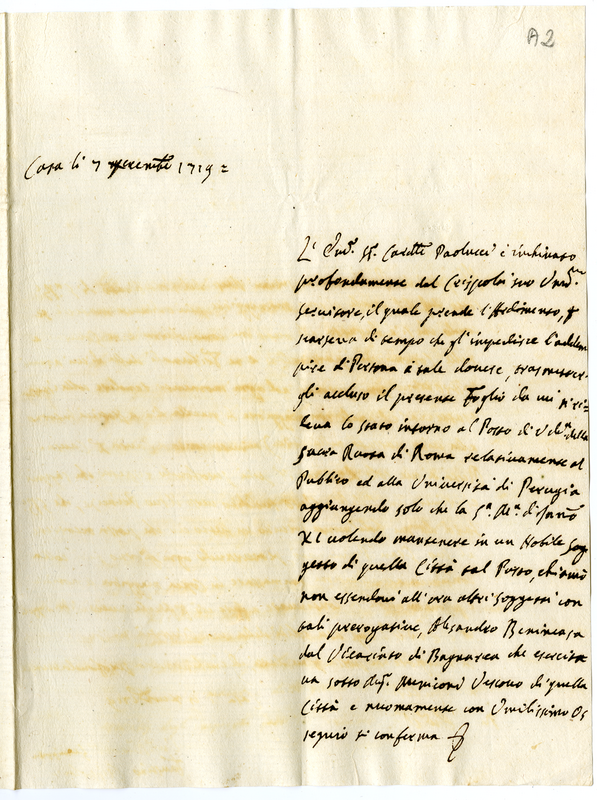 A2
Casa li 7 9cembre 1719 =
L' Em.º Sr. Card.le Paolucci è inchinato
profondamente dal Crispolti suo Um.mo
servitore, il quale prende l'Ardimento, p
scarsezza di tempo che gl'impedisce l'adem
pire di Persona à tale dovere, trasmetter-
gli accluso il presente Foglio da cui si ri=
leva lo stato intorno al Posto di Udit.re della
Sacra Ruota di Roma relativamente al
Publico ed alla Università di Perugia
aggiungendo solo che la S.ª M.ª d'Inno
XI volendo mantenere in un Nobile sog
getto di quella Città tal Posto, chiamò
non essendovi all'ora altri soggetti con
tali prerogative, Alesandro Benincasa
dal Vicariato di Bagnarea che esercita
va sotto Msg.r Meniconi Vescovo di quella
Città e nuovamente con Umilissimo Os
sequio si conferma